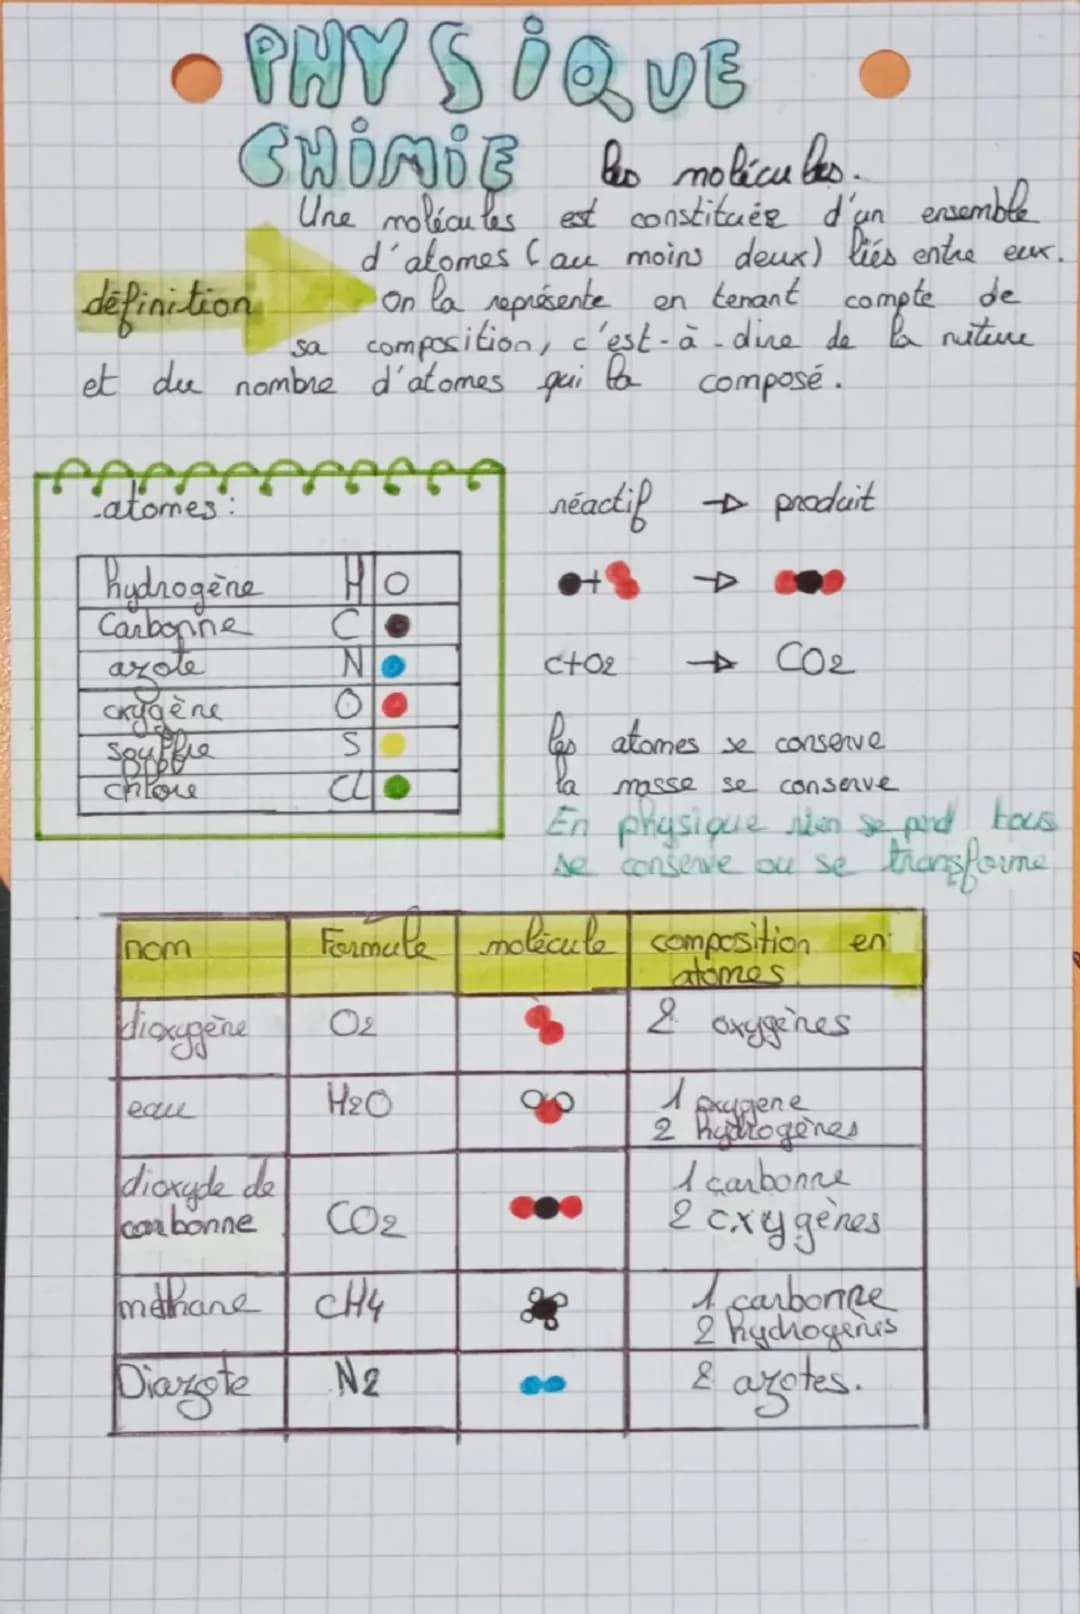 PHYSIQUE
CHIMIE les molécules.
Une molécules est constituée d'un ensemble
d'atomes (au moins deux) liés entre eux.
définition
On la représente en tenant compte de
sa composition, c'est-à-dire de la nature
et du nombre d'atomes qui la composé.
atomes:
hydrogène H
Carbonne C
azote N
oxygène O
souffre S
chlore Cl
réactif → produit
+ →
C+O2 → CO2
les atomes se conserve
la masse se conserve
En physique rien se perd tous
se conserve ou se transforme
nom Formule molécule composition en
atomes
dioxygène O2 2 oxygènes
eau H2O 1 oxygene
2 hydrogènes
dioxyde de
carbonne CO2 1 carbonne
2 oxygènes
méthane CH4 1 carbonne
2 hydrogènes
Diazote N2 2 azotes.